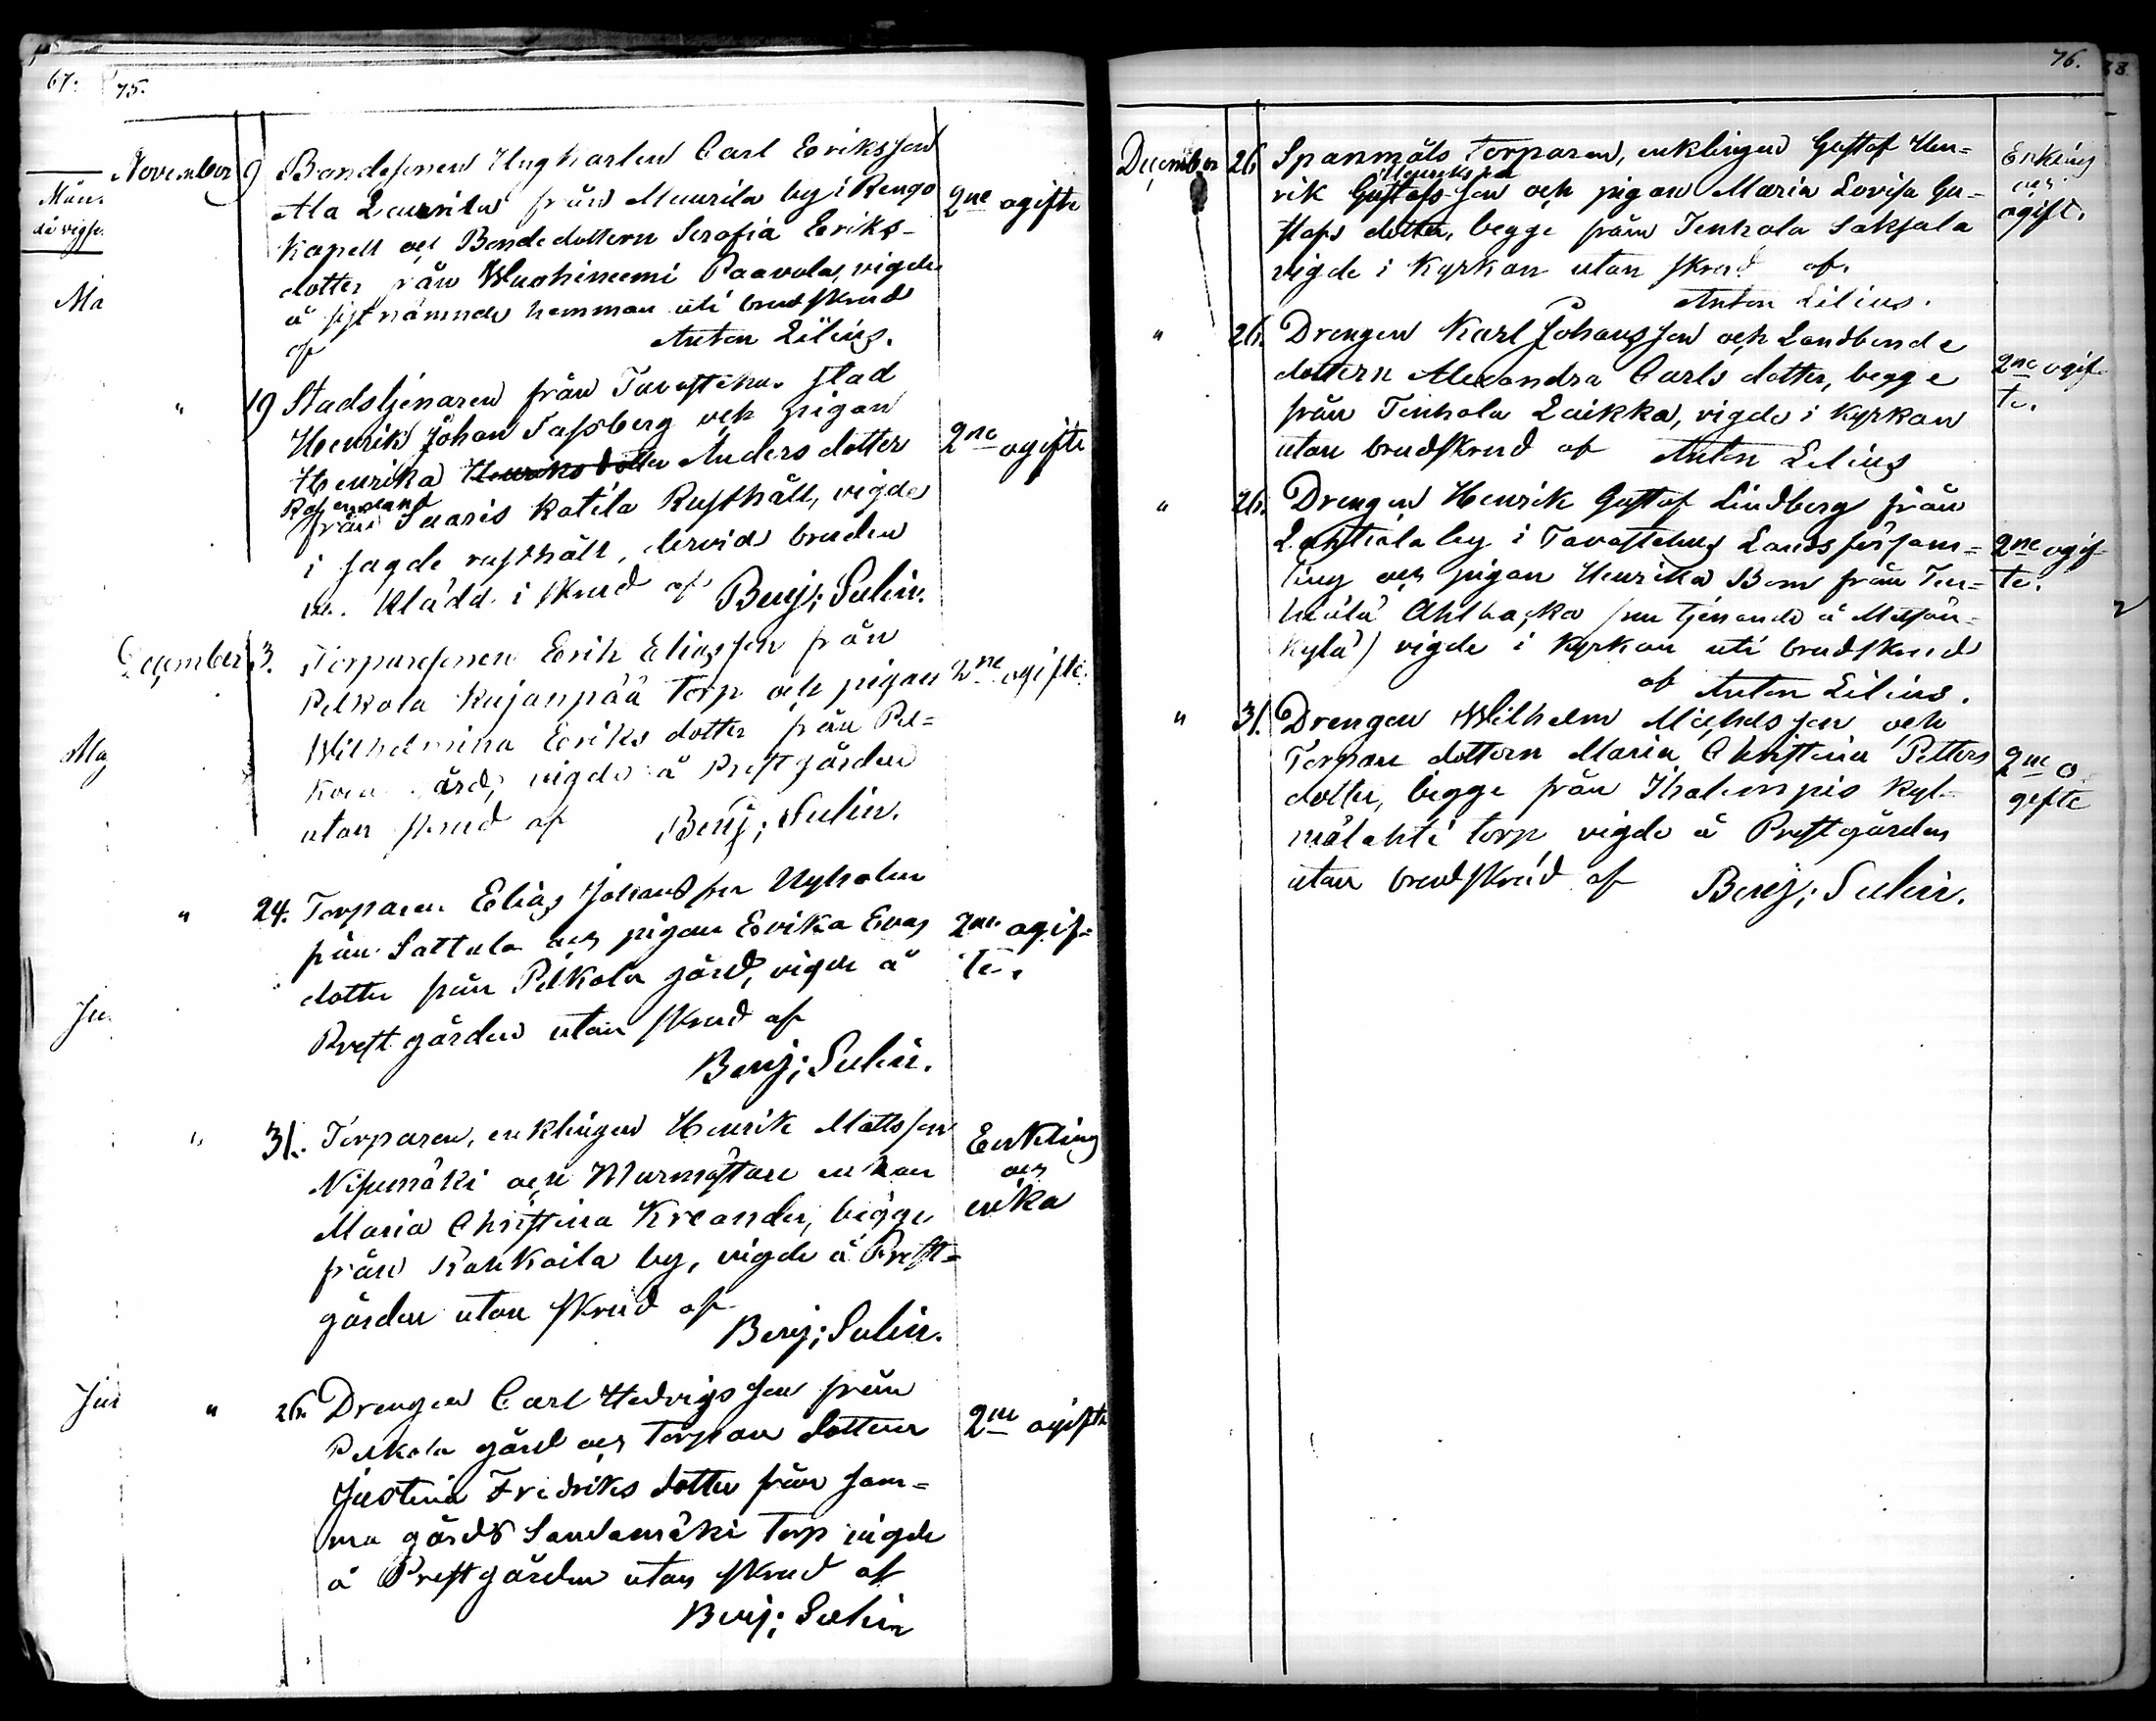 67.
75.
Mån.
Ma
November 9 Bondesonen Ungkarlen Carl Eriksson
Ala Laurila från Maurila by i Rengo
Kapell och Bondedottern Serafia Eriks-
dotter från Wuohiniemi Paavola, vigde
å sistnämnde hemman uti brudskrud
af Anton Lilius.
2ne ogifte
" 19 Stadstjenaren från Tavastehus stad
Henrik Johan Tassberg och pigan
Henrika Henriksdotter Anders dotter
från Saaris Katila Rusthåll, vigde
i sagde rusthåll, dervid bruden
klädd i skrud af Benj; Sulin.
2ne ogifte
December 3. Torparesonen Erik Eliasson från
Pelkola Kujanpää Torp och pigan
Wilhelmina Eriks dotter från Pel=
kola gård, vigde å Prestgården
utan skrud af Benj; Sulin.
2ne ogifte.
" 24. Torparen Elias Johansson Nyholm
från Sattula och pigan Evika Evas
dotter från Pelkola gård, vigde å
Prestgården utan skrud af
Benj; Sulin.
2ne ogif=
te.
" 31. Torparen, enklingen Henrik Mattsson
Nisumäki och Murmästare enkan
Maria Christina Kreander, begge
från Kankaila by, vigde å Prest=
gården utan skrud af
Benj; Sulin.
Enkling
och
enka
" 26. Drengen Carl Hedvigsson från
Pelkola gård och Torpare dottern
Justina Fredriks dotter från sam=
ma gårds Sandamäki Torp vigde
å Prestgården utan skrud af
Benj; Sulin
2ne ogifte
76.
December 26. Spanmåls Torparen, enklingen Gustaf Hen=
Henriksson
rik Gustafsson och pigan Maria Lovisa Gu=
stafs dotter, begge från Tenhola Saksala
vigde i Kyrkan utan skrud af
Anton Lilius.
Enkling
och
ogift.
" 26. Drengen Karl Johansson och Landbonde
dottern Alexandra Carls dotter, begge
från Tenhola Laikka, vigde i Kyrkan
utan brudskrud af Anton Lilius
2ne ogif-
te.
" 26. Drengen Henrik Gustaf Lindberg från
Luhtiala by i Tavastehus Landsförsam=
ling och pigan Henrika Bom från Ten=
hiälä Ahlbacka (nu tjenande å Metsän-
kylä) vigde i Kyrkan uti brudskrud
af Anton Lilius.
2ne ogif-
te.
" 31. Drengen Wilhelm Michelsson och
Torpare dottern Maria Christina Petters
dotter, begge från Ihalempis Kyl-
mälahti torp vigde å Prestgården
utan brudskrud af Benj; Sulin.
2ne o
gifte